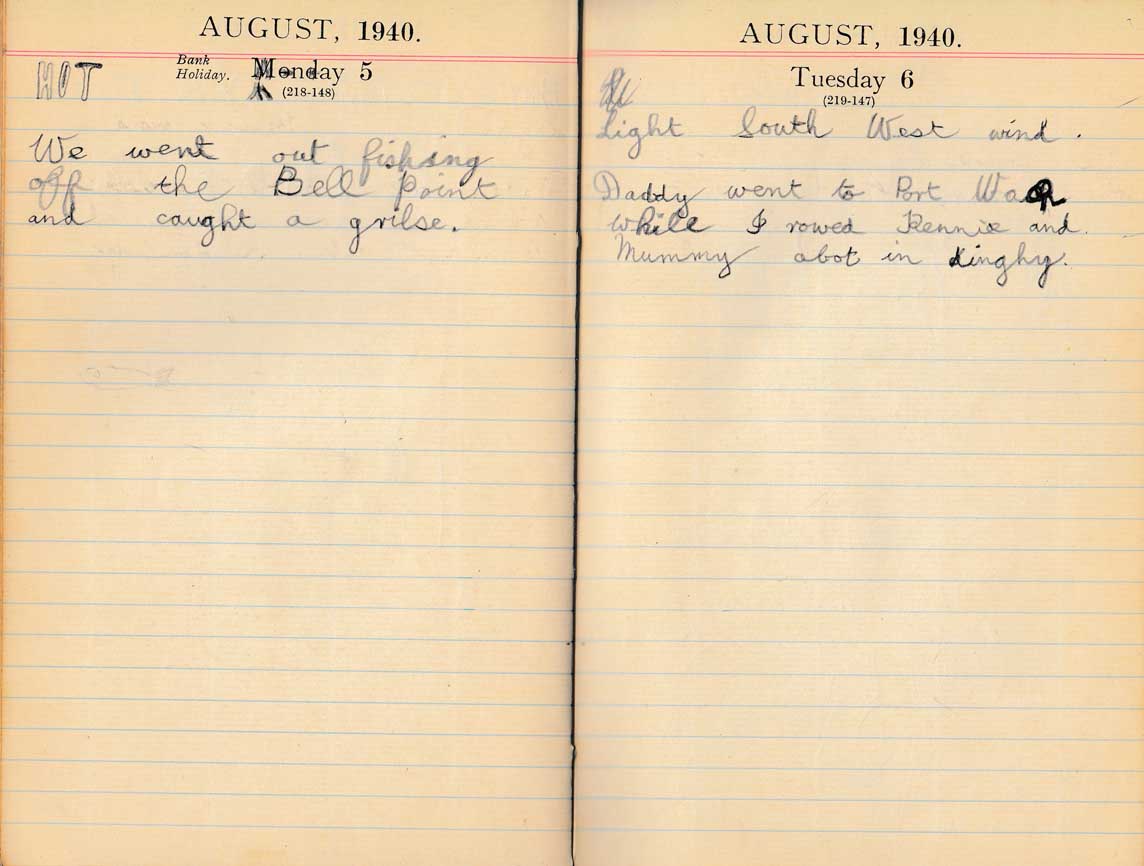 AUGUST, 1940.
Bank
Holiday.
Monday 5
(218-148)
HOT
We went out fishing
off the Bell Point
and caught a grilse.
AUGUST, 1940.
Tuesday 6
(219-147)
Light South West wind.
Daddy went to Port
while I rowed Rennie and.
Mummy abot in dinghy.